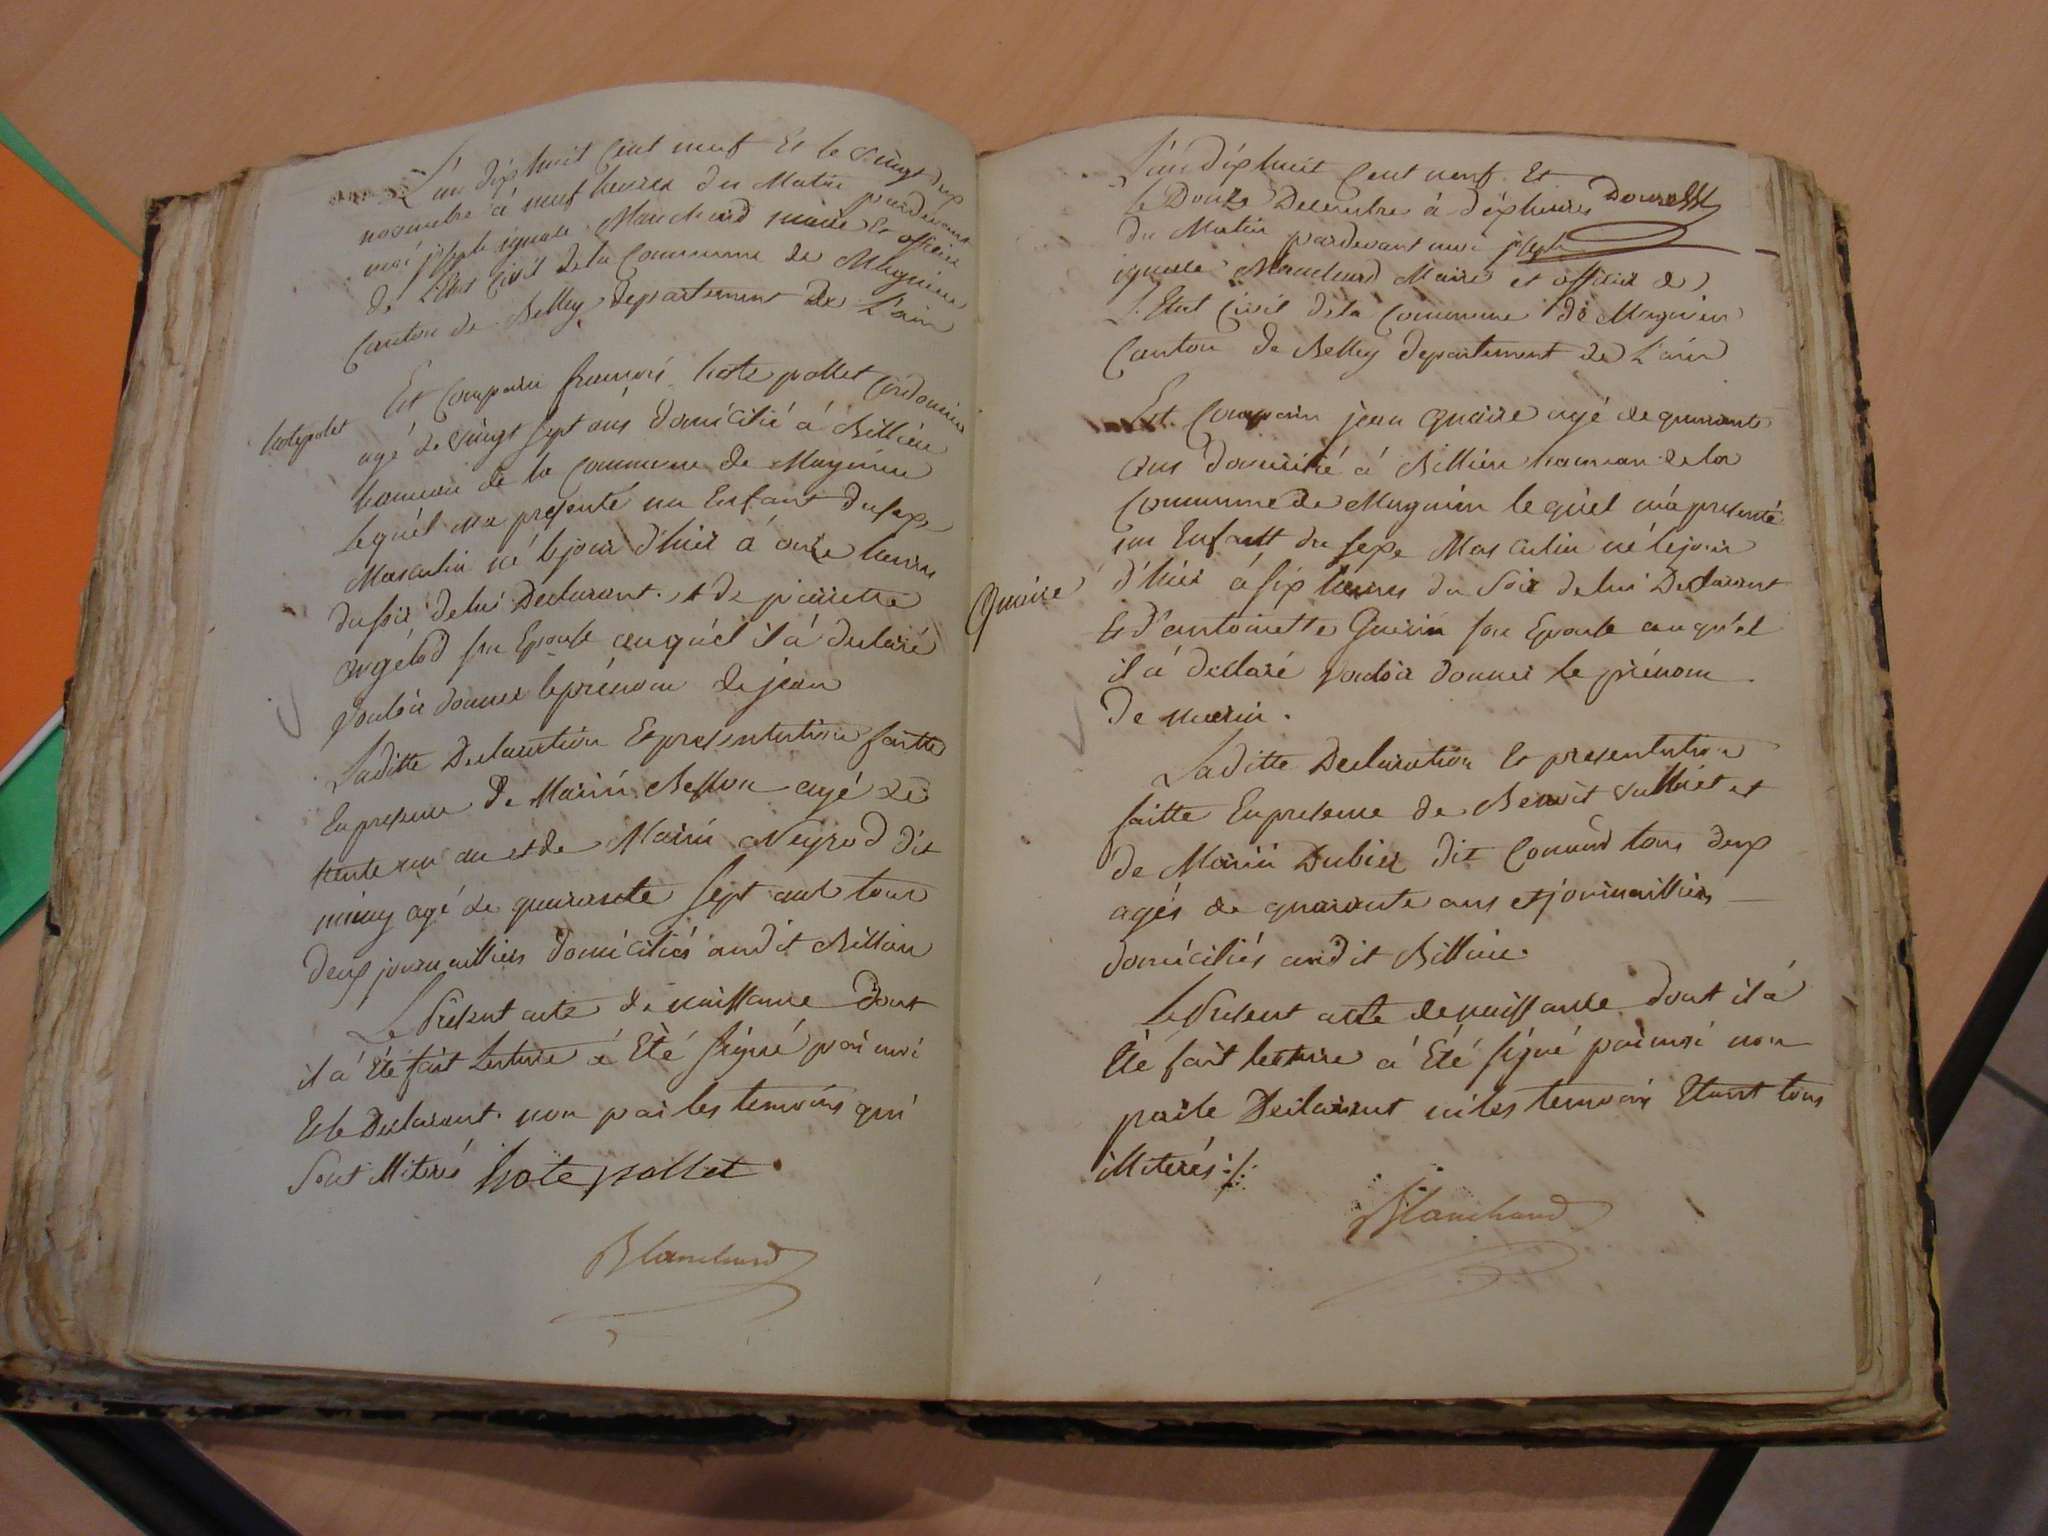 L'an dix huit Cent neuf Et le vingt deux
novembre á neuf heures du Matin pardevant
moi joseph ignace Blanchard maire Et officier
de L'Etat Civil de la Commune de Magnieu
Canton de Belley departement de L'ain
hotepolet
Est Comparu françois hote pollet Cordonier
agé de vingt sept ans domicilié á Billieu
hameau de la Commune de Magnieu
Lequél ma presenté un Enfant du sexe
Masculin né le jour d'hier á onze heures
du soir de lui Declarant et de pierrette
angélod son Epouse auquél il á declaré
vouloir donner le prénom de jean
Laditte Declaration Et presentation faitte
En presence de Marin Besson agé de
trente un an et de Marin Neyrod dit
mimy agé de quarante sept ans tous
deux journailliers domiciliés audit Billieu
Le Présent acte de naissance dont
il á Eté fait Lecture á Eté signé par moi
Et le Declarant non par les temoins qui
sont illiterés hote pollet
Blanchard
L'an dix huit Cent neuf Et
le Douze Decembre á dix heures
du Matin pardevant moi joseph
ignace Blanchard Maire et officier de
L'Etat Civil de la Commune de Magnieu
Canton de Belley departement de L'ain
Est Comparu jean quaire agé de quarante
ans domicilié á Billieu hameau de la
Commune de Magnieu lequél m'á presenté
un Enfant du sexe Masculin né le jour
Quaire
d'hier á six heures du soir de lui Declarant
Et d'antoinette Guérin son Epouse auquél
il á declaré vouloir donner le prénom
De marin.
Laditte Declaration Et presentation
faitte En presence de Benoit vulliet et
de Marin Dubier dit tous deux
agés de quarante ans et journailliers
domiciliés audit Billieu
Le Présent acte de naissance dont il á
Eté fait lecture á Eté signé par moi non
par le Declarant ni les temoins Etant tous
illiterés ./.
Blanchard